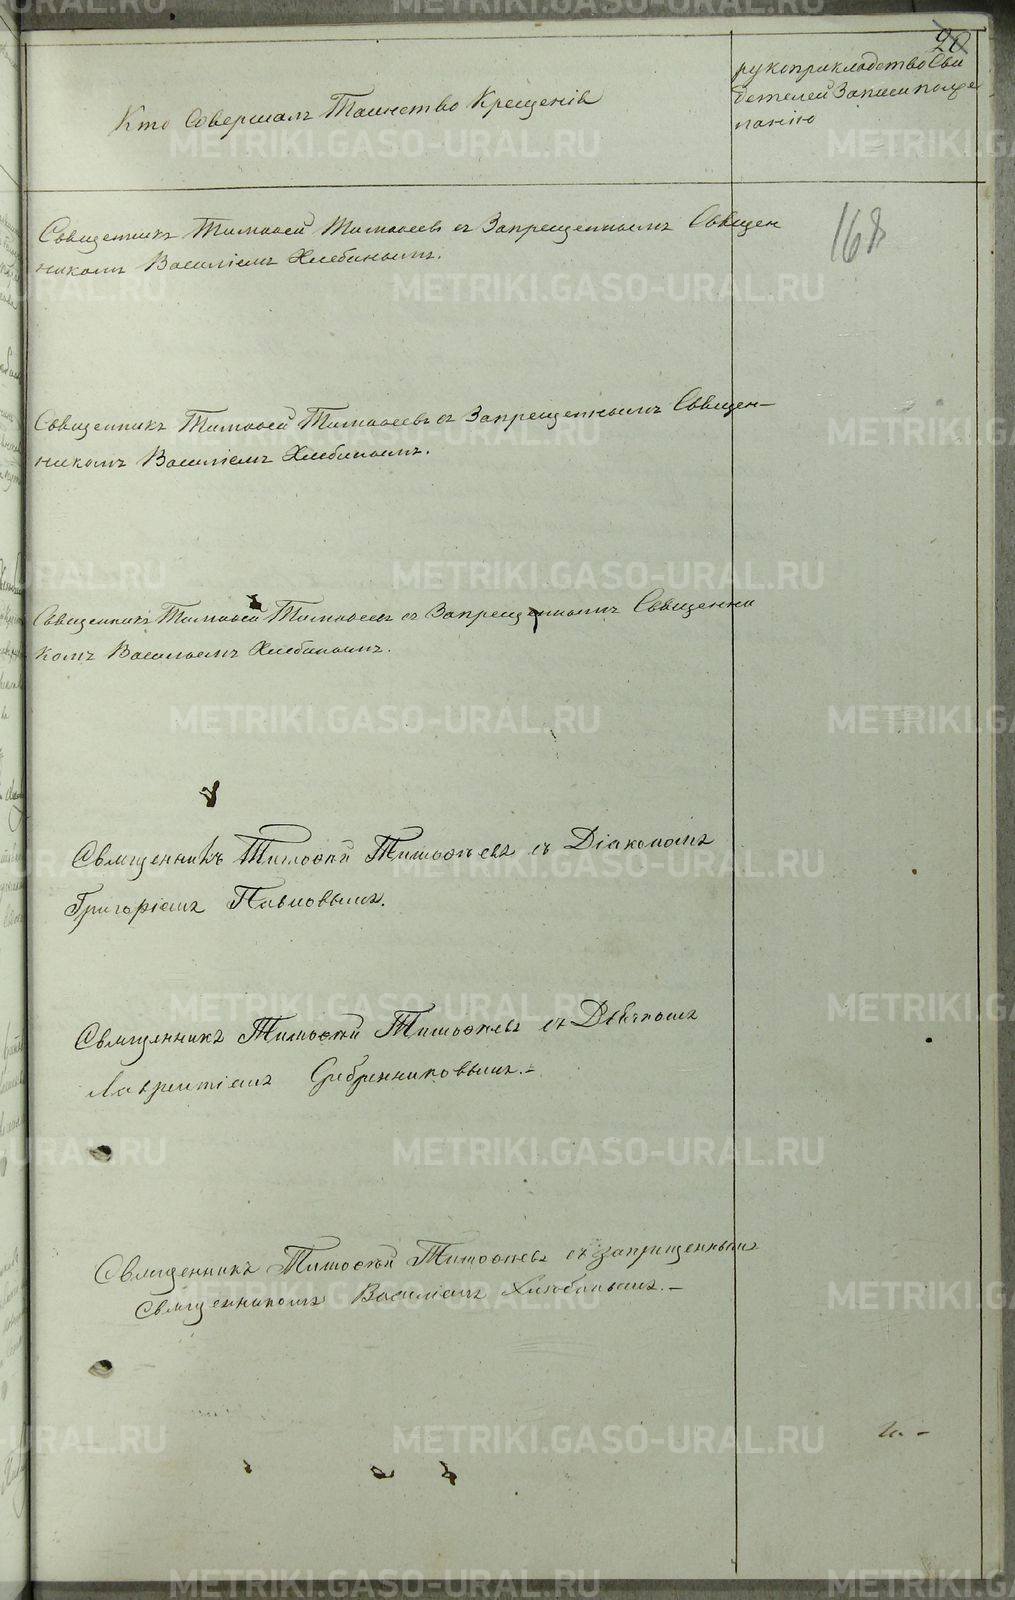 20
Кто Совершалъ Таинство Крещенія
рукоприкладство Сви
детелей Записи по же
ланію
168
Священникъ Тимофей Тимофеевъ съ Запрещеннымъ Священ
никомъ Василіемъ Хлебинымъ.
Священникъ Тимофей Тимофеевъ съ Запрещеннымъ Священ-
никомъ Василіемъ Хлебинымъ.
Священникъ Тимофей Тимофеевъ съ Запрещеннымъ Священни
комъ Васильемъ Хлебинымъ.
Священникъ Тимоѳей Тимоѳеевъ съ Діакономъ
Григоріемъ Павловымъ.
Священникъ Тимоѳей Тимоѳеевъ съ Дьячкомъ
Лаврентіемъ Серебренниковымъ.-
Священникъ Тимоѳей Тимоѳеевъ съ запрещеннымъ
Священникомъ Василіемъ Хлѣбинымъ.-
METRIKI.GASO-URAL.RU